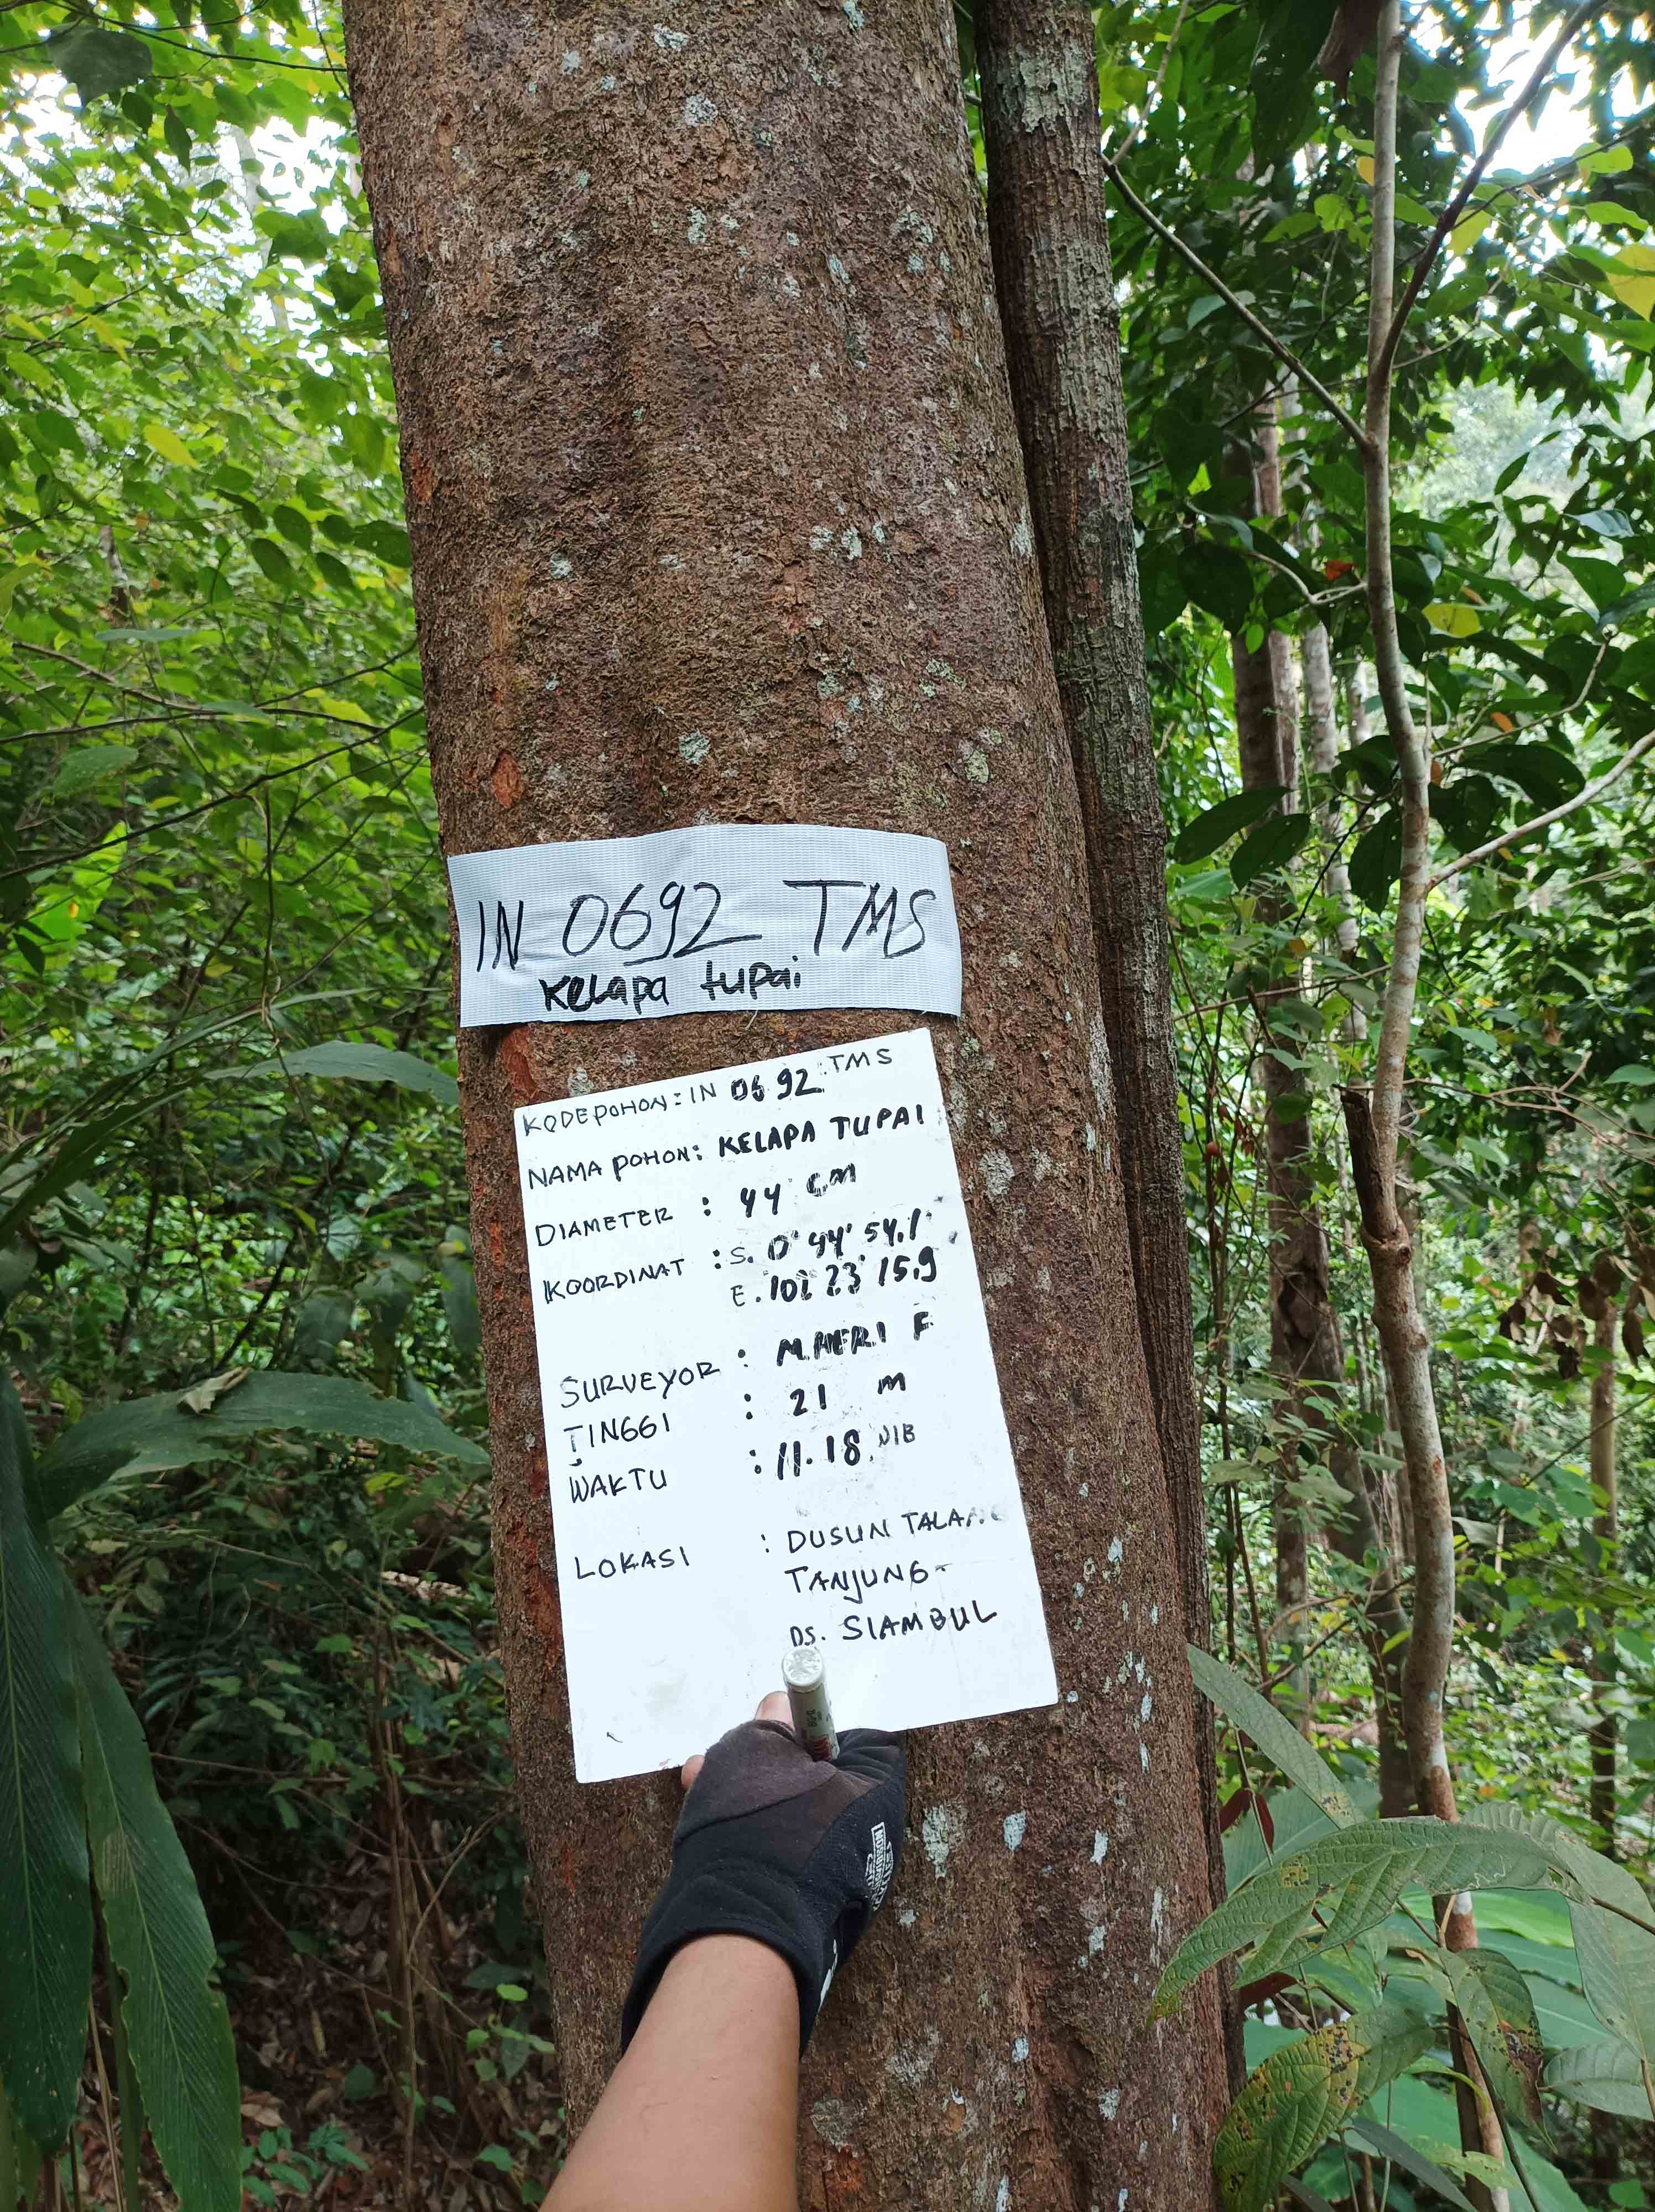 IN 0692 TMS
Kelapa tupai
KODE POHON : IN 0692 TMS
NAMA POHON : KELAPA TUPAI
DIAMETER : 44 CM
KOORDINAT : S. 0° 44' 54.1"
E. 102 23' 15.9
SURVEYOR : M. HERI F
TINGGI : 21 m
WAKTU : 11.18 WIB
LOKASI : DUSUN TALANG
TANJUNG-
DS. SIAMBUL